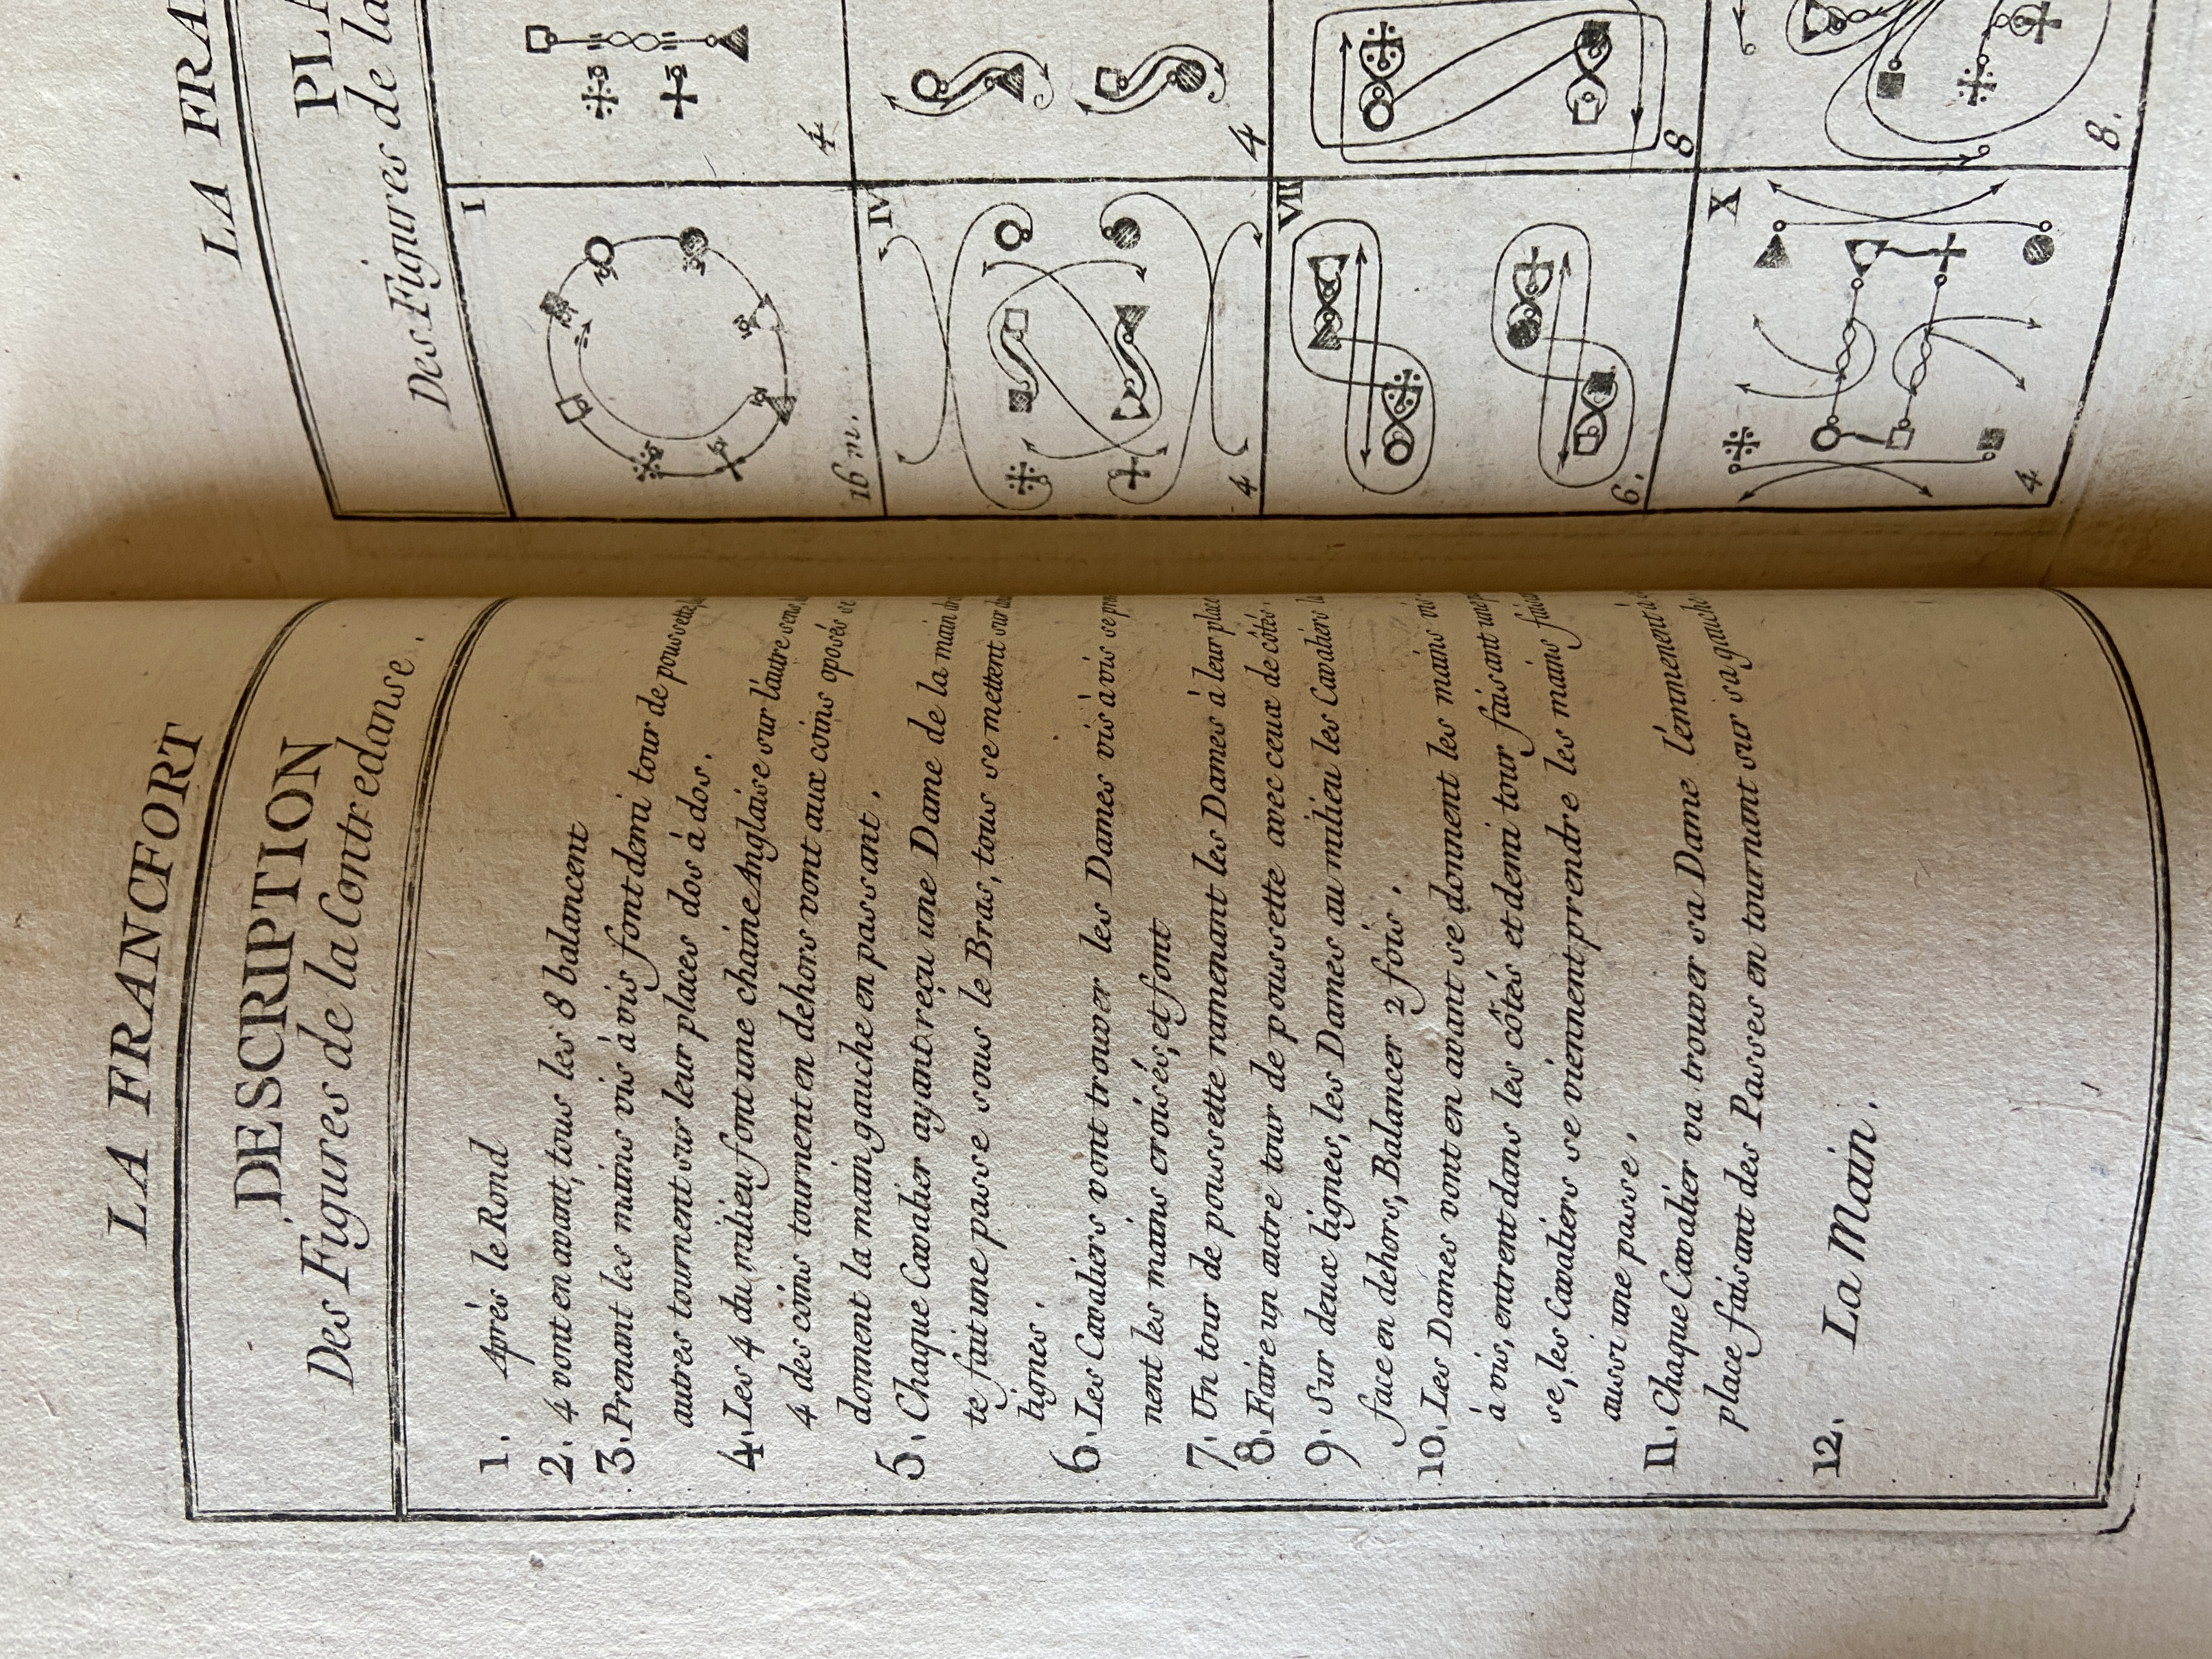 LA FRANCFORT
DESCRIPTION
Des Figures de la Contredanse.
1. Aprés le Rond
2. 4 vont en avant, tous les 8 balancent
3. Prenant les mains vis à vis font demi tour de poussette,
autres tournent sur leur places dos à dos.
4. Les 4 du milieu font une chaine Anglaise sur l'autre sens,
4 des coins tournent en dehors vont aux coins oposés se
donnent la main gauche en passant.
5. Chaque Cavalier ayant reçu une Dame de la main
te fait une passe sous le Bras, tous se mettent sur
lignes.
6. Les Cavaliers vont trouver les Dames vis à vis se
nent les mains croisés, et font
7. Un tour de poussette ramenant les Dames à leur place
8. Faire un autre tour de poussette avec ceux de côtés.
9. Sur deux lignes, les Dames au milieu les Cavaliers
face en dehors, Balancer 2 fois.
10. Les Dames vont en avant se donnent les mains vis
à vis, entrent dans les côtés et demi tour faisant une
se, les Cavaliers se viennent prendre les mains
aussi une passe.
11. Chaque Cavalier va trouver sa Dame l'emmenent
place faisant des Passes en tournant sur sa gauche
12. La Main.
LA FRA
PLA
Des Figures de la
I
16 m.
4
IV
4
4
VII
6.
8
X
4
8.